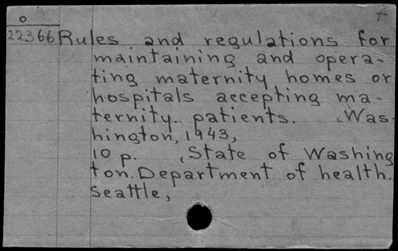 o
22366 Rules and regulations for
maintaining and opera-
ting maternity homes or
hospitals accepting ma-
ternity patients. Was-
hington, 1943,
10 p. State of Washing
ton. Department of health.
Seattle,